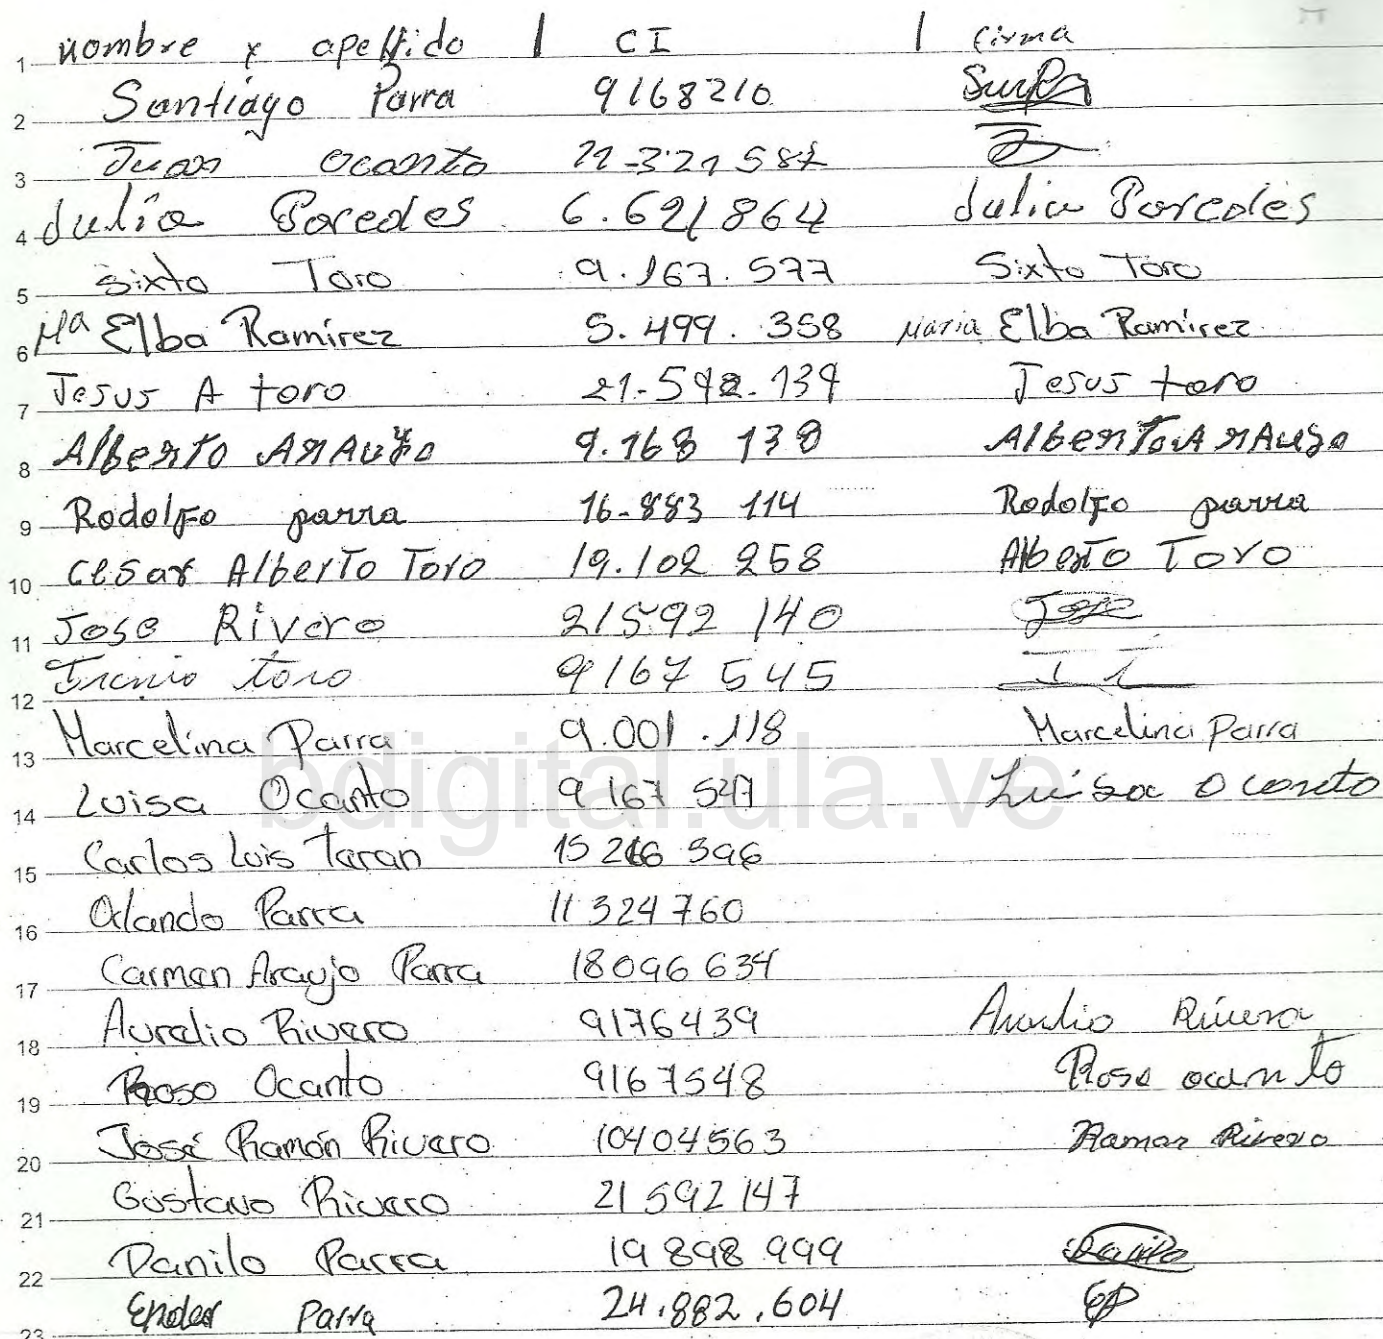 nombre y apellido | CI | firma
1
Santiago Parra 9168210
2
Juan Ocanto 11-321587
3
Julia Paredes 6.621864 Julia Paredes
4
Sixto Toro 9.167.577 Sixto Toro
5
Mª Elba Ramirez 5.499.358 Maria Elba Ramirez
6
Jesus A toro 21-592.139 Jesus toro
7
Alberto ArAujo 9.168 138 Alberto ArAujo
8
Rodolfo parra 16-883 114 Rodolfo parra
9
Cesar Alberto Toro 19.102 258 Alberto Toro
10
Jose Rivero 21592 140 Jose
11
toro 9167 545
12
Marcelina Parra 9.001.118 Marcelina Parra
13
Luisa Ocanto 9 167 547 Luisa Ocanto
14
Carlos Luis Taran 15 266 596
15
Orlando Parra 11 324 760
16
Carmen Araujo Parra 18096 634
17
Aurelio Rivero 9176439 Aurelio Rivera
18
Roso Ocanto 9167548 Roso ocanto
19
José Ramón Rivero 10404563 Ramon Rivero
20
Gustavo Rivero 21 592 147
21
Danilo Parra 19 898 999 Danilo
22
Ender Parra 24.882.604 EP
23
bdigital.ula.ve